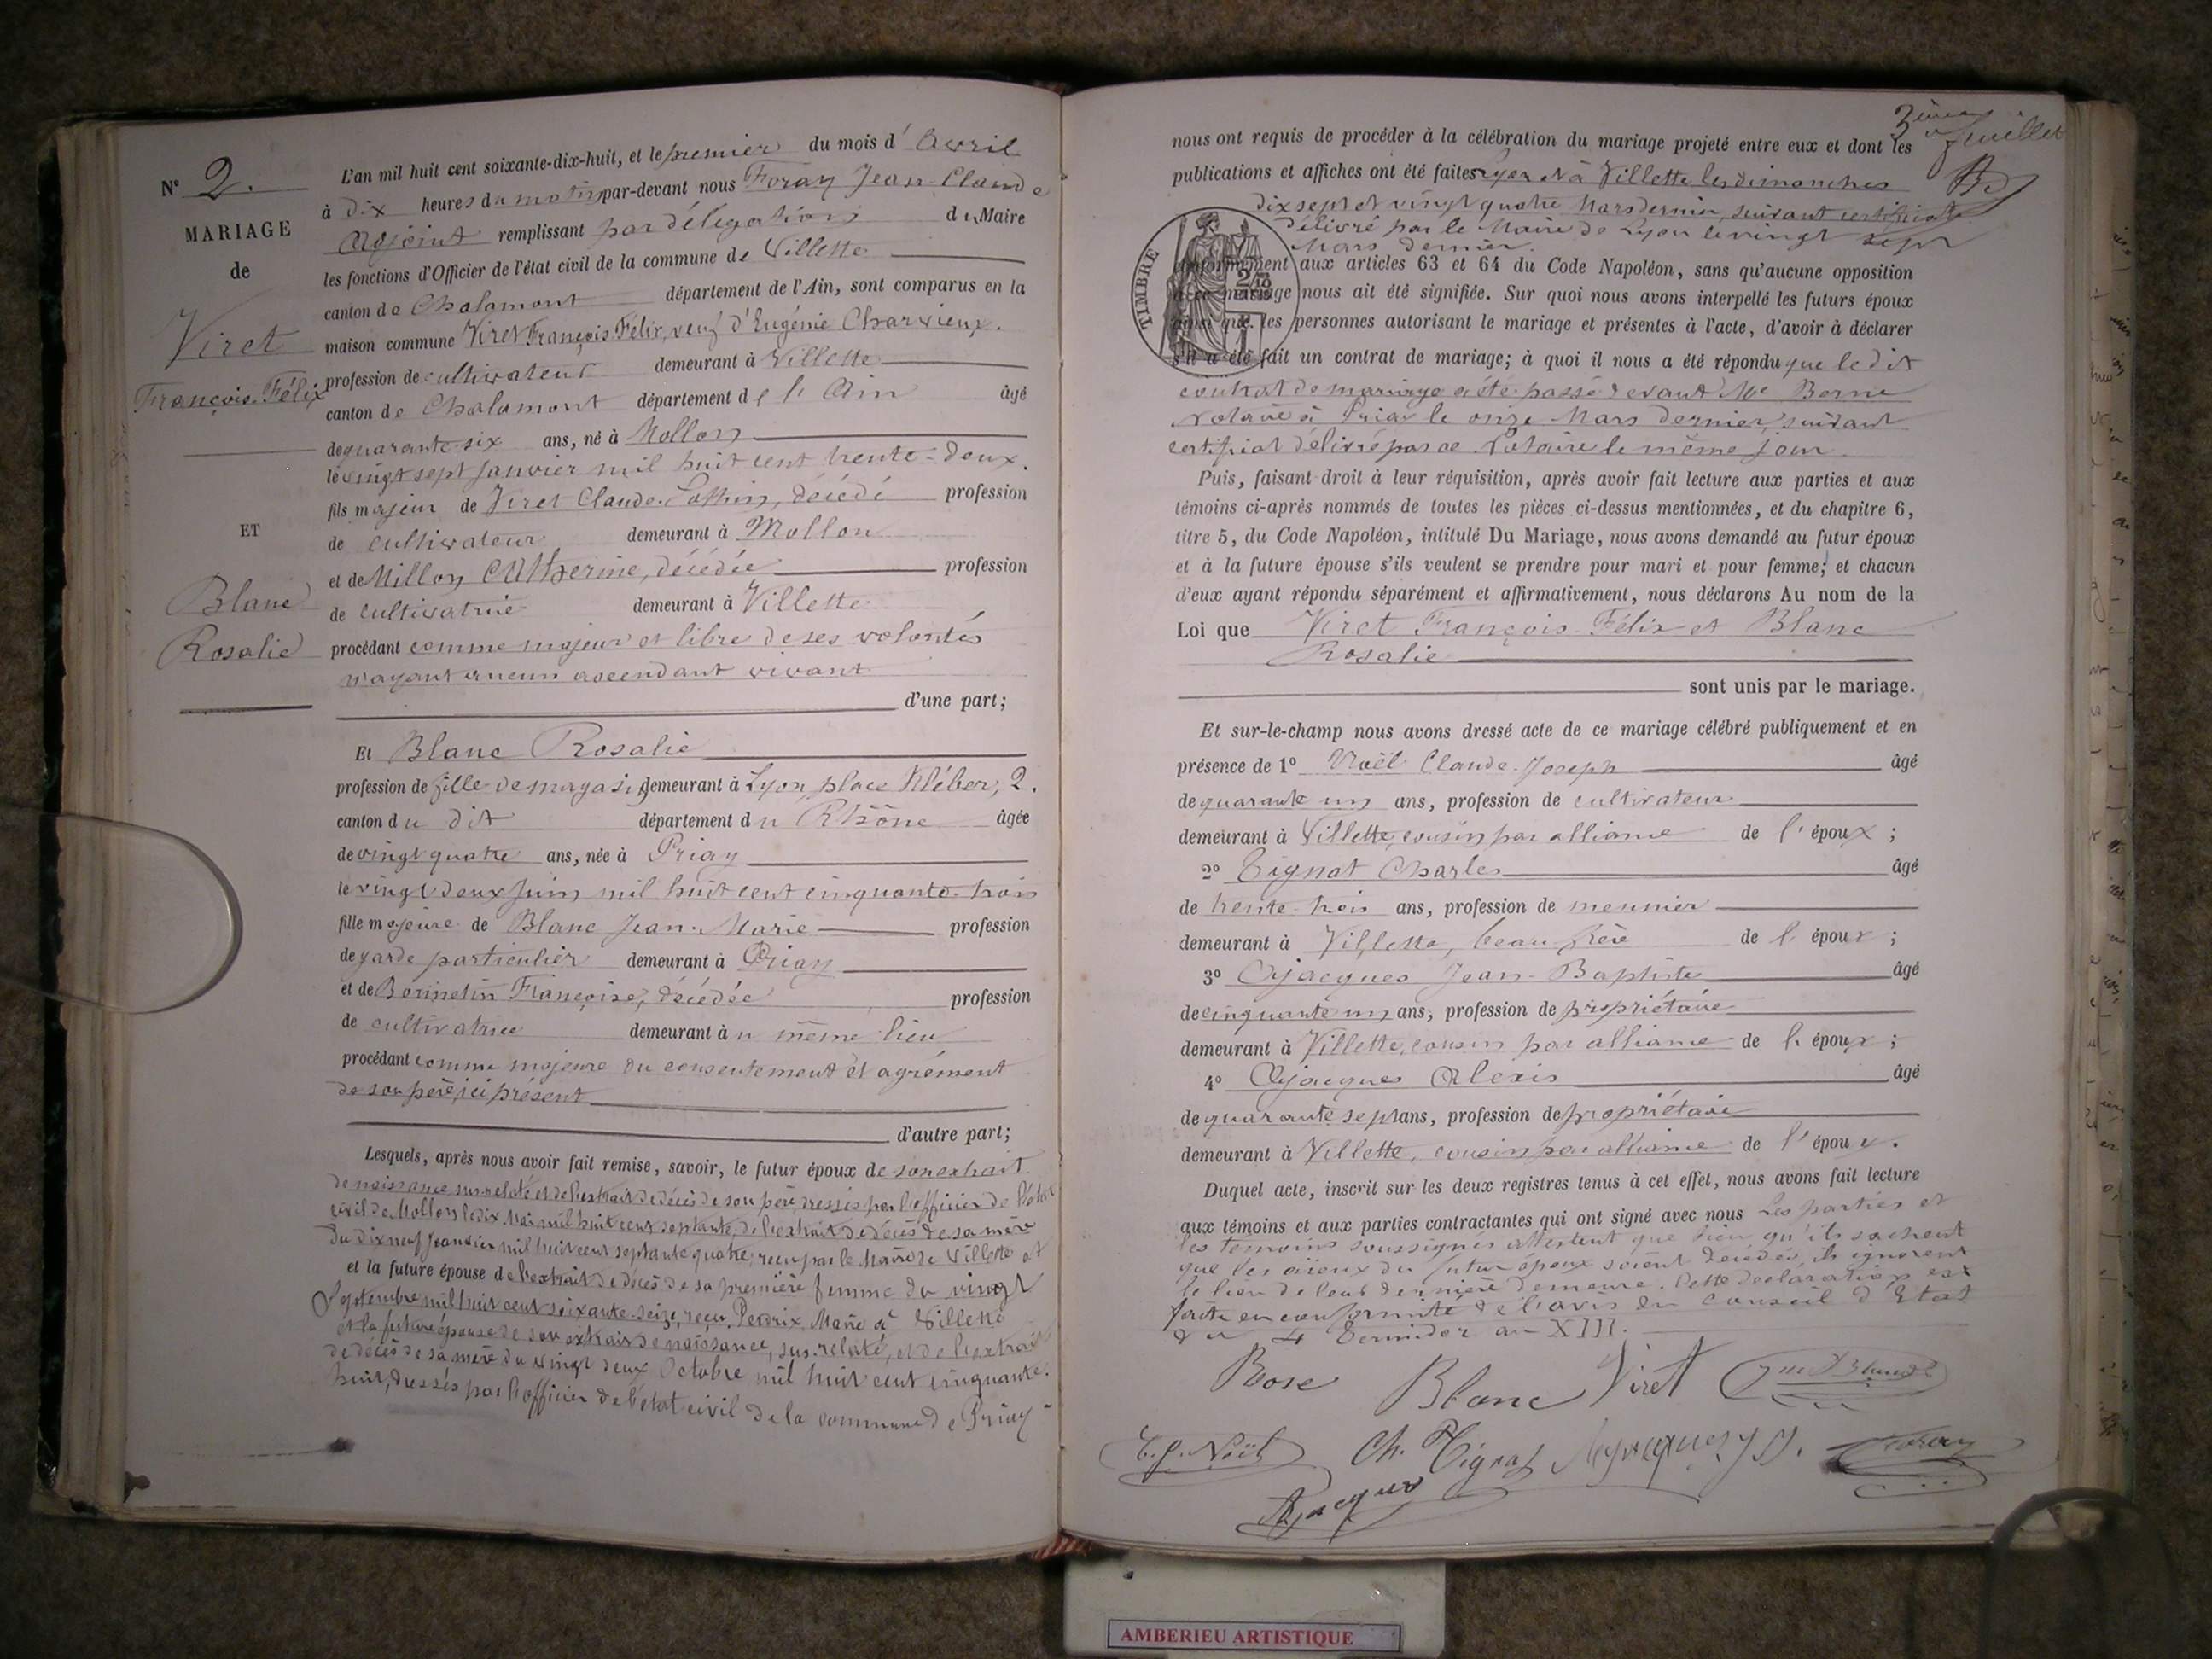 N° 2.
MARIAGE
de
Viret
François-Félix
ET
Blanc
Rosalie
L'an mil huit cent soixante-dix-huit, et le premier du mois d'Avril
à dix heures du matin par-devant nous Foray Jean-Claude
adjoint remplissant par délégation du Maire
les fonctions d'Officier de l'état civil de la commune de Villette
canton de Chalamont département de l'Ain, sont comparus en la
maison commune Viret François Félix, veuf d'Eugénie Charvieux.
profession de cultivateur demeurant à Villette
canton de Chalamont département de l'Ain âgé
de quarante-six ans, né à Mollon
le vingt sept janvier mil huit cent trente-deux.
fils majeur de Viret Claude décédé profession
de cultivateur demeurant à Mollon
et de Millon Catherine, décédée profession
de cultivatrice demeurant à Villette
procédant comme majeur et libre de ses volontés
n'ayant aucun ascendant vivant
d'une part;
Et Blanc Rosalie
profession de fille de magasin demeurant à Lyon, place Kléber, 2.
canton du dit département du Rhône âgée
de vingt quatre ans, née à Priay
le vingt deux Juin mil huit cent cinquante-trois
fille majeure de Blanc Jean-Marie profession
de garde particulier demeurant à Priay
et de Françoise, décédée profession
de cultivatrice demeurant au même lieu
procédant comme majeure du consentement et agrément
de son père, ici présent
d'autre part;
Lesquels, après nous avoir fait remise, savoir, le futur époux de son extrait
de naissance susrelaté et de l'extrait de décès de son père dressés par l'officier de l'état
civil de Mollon le dix Mai mil huit cent septante, de l'extrait de décès de sa mère
du dix neuf Janvier mil huit cent septante quatre, reçu par le Maire de Villette et
et la future épouse de l'extrait de décès de sa première femme du vingt
Septembre mil huit cent soixante-seize, reçu Perdrix Maire à Villette
et la future épouse de son extrait de naissance, sus-relaté, et de l'extrait
de décès de sa mère du vingt deux Octobre mil huit cent cinquante-
huit, dressés par l'officier de l'état civil de la commune de Priay
3ème feuillet
nous ont requis de procéder à la célébration du mariage projeté entre eux et dont les
publications et affiches ont été faites Lyon et à Villette les dimanches
dix sept et vingt quatre Mars dernier, suivant certificat
délivré par le Maire de Lyon le vingt sept
Mars dernier.
TIMBRE
conformément aux articles 63 et 64 du Code Napoléon, sans qu'aucune opposition
à ce mariage nous ait été signifiée. Sur quoi nous avons interpellé les futurs époux
ainsi que les personnes autorisant le mariage et présentes à l'acte, d'avoir à déclarer
s'il a été fait un contrat de mariage; à quoi il nous a été répondu que le dit
contrat de mariage a été passé devant Me Berne
Notaire à Priay le onze Mars dernier, suivant
certificat délivré par ce Notaire le même jour
Puis, faisant droit à leur réquisition, après avoir fait lecture aux parties et aux
témoins ci-après nommés de toutes les pièces ci-dessus mentionnées, et du chapitre 6,
titre 5, du Code Napoléon, intitulé Du Mariage, nous avons demandé au futur époux
et à la future épouse s'ils veulent se prendre pour mari et pour femme; et chacun
d'eux ayant répondu séparément et affirmativement, nous déclarons Au nom de la
Loi que Viret François-Félix et Blanc
Rosalie
sont unis par le mariage.
Et sur-le-champ nous avons dressé acte de ce mariage célébré publiquement et en
présence de 1° Noël Claude-Joseph âgé
de quarante un ans, profession de cultivateur
demeurant à Villette, cousin par alliance de l'époux;
2° Tignat Charles âgé
de trente-trois ans, profession de meunier
demeurant à Villette, beau frère de l'époux;
3° Ajacques Jean-Baptiste âgé
de cinquante un ans, profession de propriétaire
demeurant à Villette, cousin par alliance de l'époux;
4° Ajacques Alexis âgé
de quarante sept ans, profession de propriétaire
demeurant à Villette, cousin par alliance de l'époux.
Duquel acte, inscrit sur les deux registres tenus à cet effet, nous avons fait lecture
aux témoins et aux parties contractantes qui ont signé avec nous Les parties et
les témoins soussignés attestent que bien qu'ils sachent
que les aïeux du futur époux soient décédés, ils ignorent
le lieu de leur dernière demeure. Cette déclaration est
faite en conformité de l'avis du Conseil d'Etat
du 4 Termidor an XIII.
Rose Blanc Viret
C. J. Noël Ch. Tignat Foray
Ajacques
AMBERIEU ARTISTIQUE